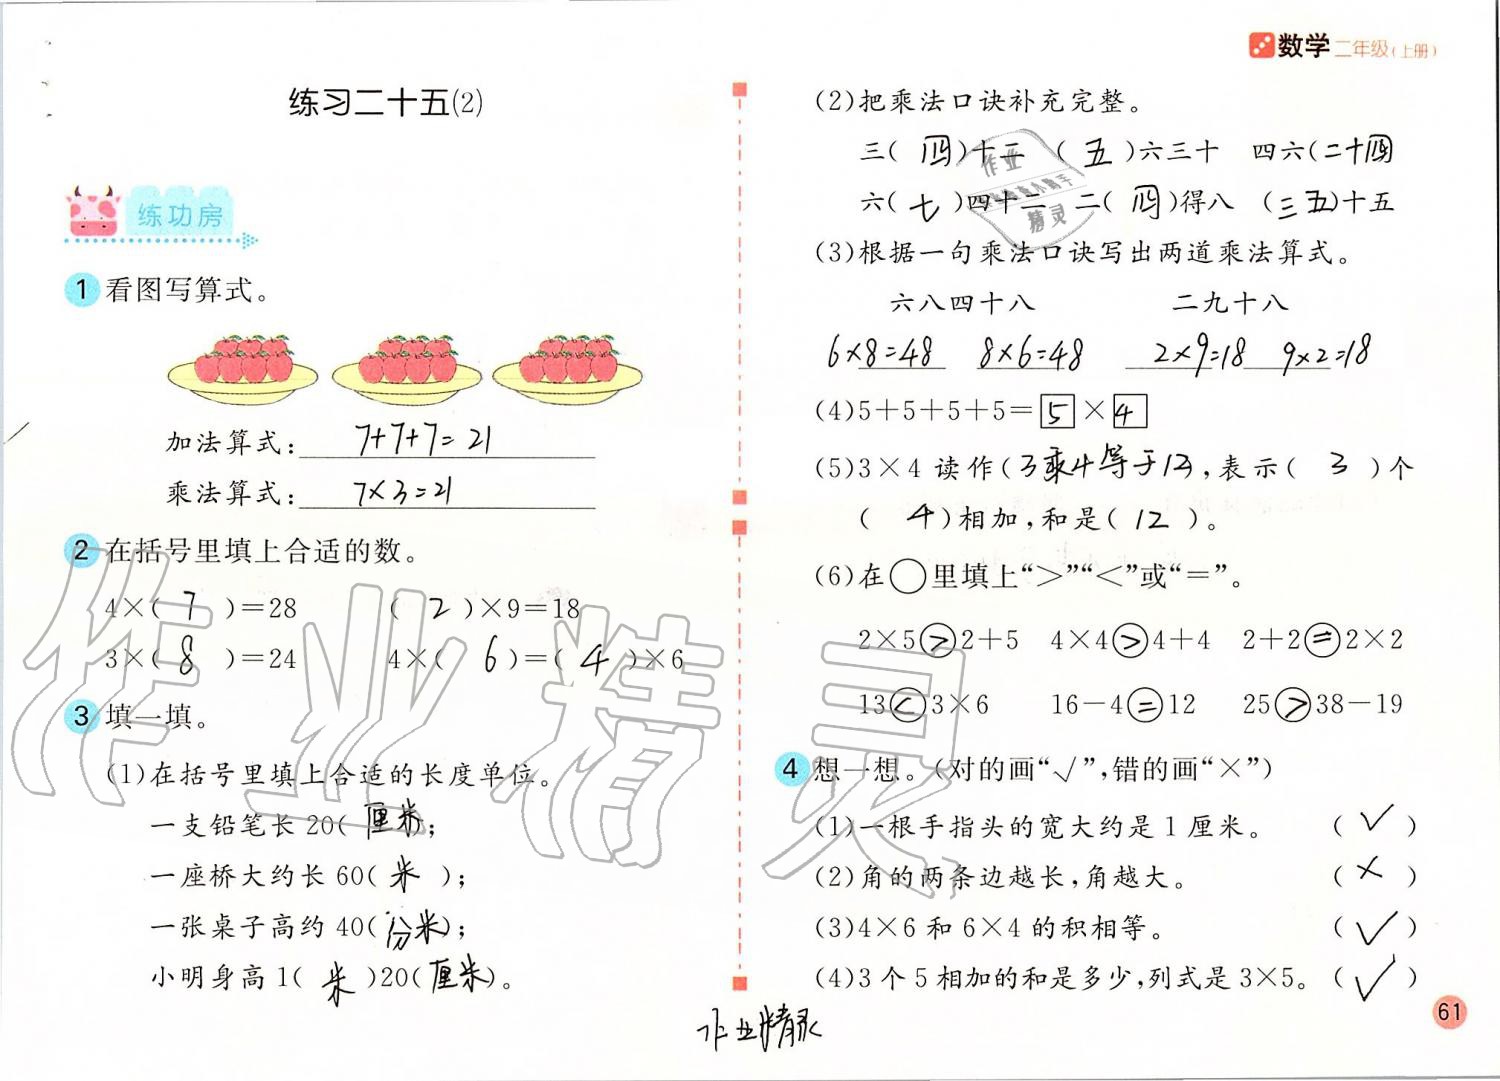 数学 二年级(上册)
练习二十五(2)
练功房
1 看图写算式。
加法算式: 7+7+7=21
乘法算式: 7×3=21
2 在括号里填上合适的数。
4×( 7 )=28 ( 2 )×9=18
3×( 8 )=24 4×( 6 )=( 4 )×6
3 填一填。
(1)在括号里填上合适的长度单位。
一支铅笔长 20(厘米);
一座桥大约长 60( 米 );
一张桌子高约 40(分米);
小明身高 1( 米 )20(厘米)。
(2)把乘法口诀补充完整。
三( 四 )十二 ( 五 )六三十 四六(二十四
六( 七 )四十二 二( 四 )得八 (三五)十五
(3)根据一句乘法口诀写出两道乘法算式。
六八四十八 二九十八
6×8=48 8×6=48 2×9=18 9×2=18
(4)5+5+5+5=5×4
(5)3×4 读作(3乘4等于12,表示( 3 )个
( 4 )相加,和是( 12 )。
(6)在○里填上“>”“<”或“=”。
2×5>2+5 4×4>4+4 2+2=2×2
13<3×6 16-4=12 25>38-19
4 想一想。(对的画“√”,错的画“×”)
(1)一根手指头的宽大约是 1 厘米。 ( √ )
(2)角的两条边越长,角越大。 ( × )
(3)4×6 和 6×4 的积相等。 ( √ )
(4)3 个 5 相加的和是多少,列式是 3×5。 ( √ )
作业精灵
61
作业精灵
作业
精灵